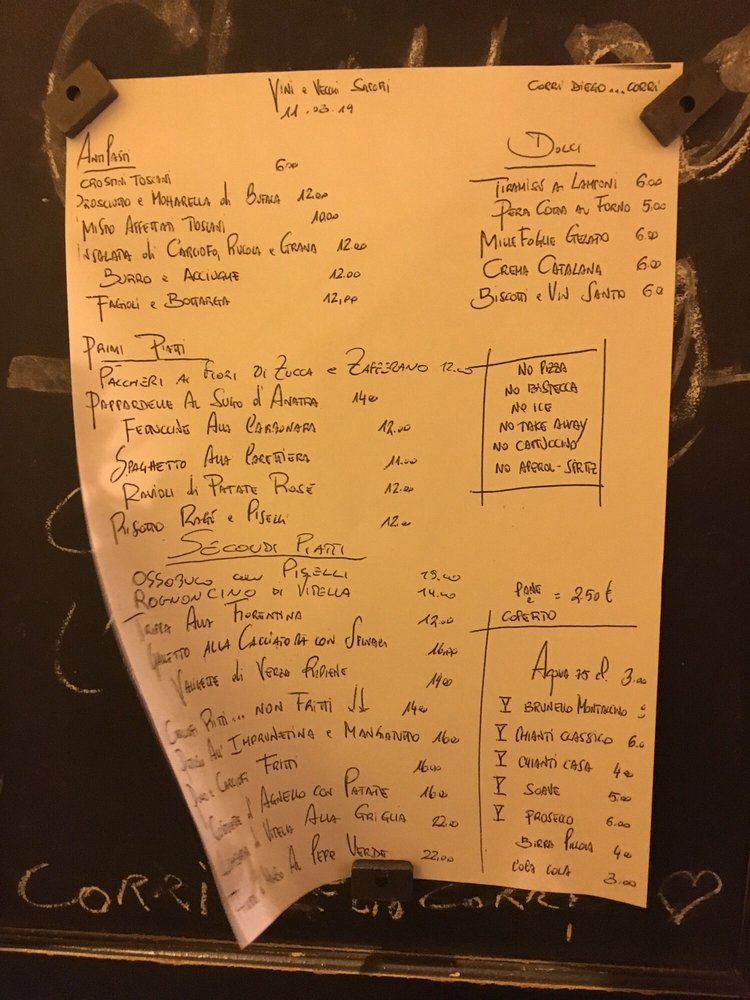 Vini e Vecchi Sapori
CORRI DIEGO...CORRI
11.03.19
Antipasti
CROSTINI TOSCANI 6.00
PROSCIUTTO e MOZZARELLA di BUFALA 12.00
MISTO AFFETTATI TOSCANI 10.00
INSALATA di CARCIOFI, RUCOLA e GRANA 12.00
BURRO e ACCIUGHE 12.00
FAGIOLI e BOTTARGA 12,00
PRIMI PIATTI
PACCHERI AI FIORI DI ZUCCA e ZAFFERANO 12.00
PAPPARDELLE AL SUGO d'ANATRA 14.00
FETTUCCINE ALLA CARBONARA 12.00
SPAGHETTO ALLA CARETTIERA 11.00
RAVIOLI di PATATE ROSÉ 12.00
RISOTTO RAGÙ e PISELLI 12.00
SECONDI PIATTI
OSSOBUCO con PISELLI
ROGNONCINO DI VITELLA 14.00
TRIPPA ALLA FIORENTINA 12.00
GALLETTO ALLA CACCIATORA CON SPINACI 16.00
di VERZA RIPIENE 14.00
FRITTI... NON FRITTI 14.00
ALL'IMPRUNETINA e 16.00
e CARCIOFI FRITTI 16.00
d'AGNELLO CON PATATE 16.00
di VITELLA ALLA GRIGLIA 22.00
AL PEPE VERDE 22.00
DOLCI
TIRAMISÙ AI LAMPONI 6.00
PERA COTTA AL FORNO 5.00
MILLEFOGLIE GELATO 6.00
CREMA CATALANA 6.00
BISCOTTI e VIN SANTO 6.0
NO PIZZA
NO BISTECCA
NO ICE
NO TAKE AWAY
NO CAPPUCCINO
NO APEROL-SPRITZ
PANE e COPERTO = 2.50 €
ACQUA 75 cl. 3.00
BRUNELLO MONTALCINO
CHIANTI CLASSICO 6.0
CHIANTI CASA 4.00
SOAVE 5.00
PROSECCO 6.00
BIRRA PICCOLA 4.00
COCA COLA 3.00
CORRI CORRI